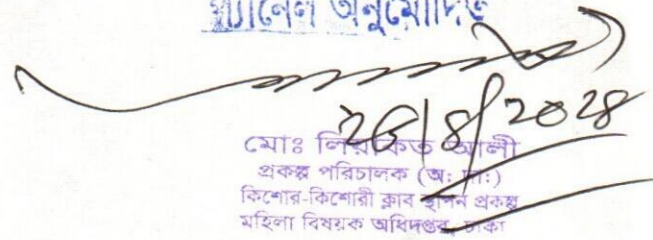 প্যানেল অনুমোদিত
২৫/৪/২০২৪
মোঃ লিয়াকত আলী
প্রকল্প পরিচালক (অ: দা:)
কিশোর-কিশোরী ক্লাব স্থাপন প্রকল্প
মহিলা বিষয়ক অধিদপ্তর, ঢাকা